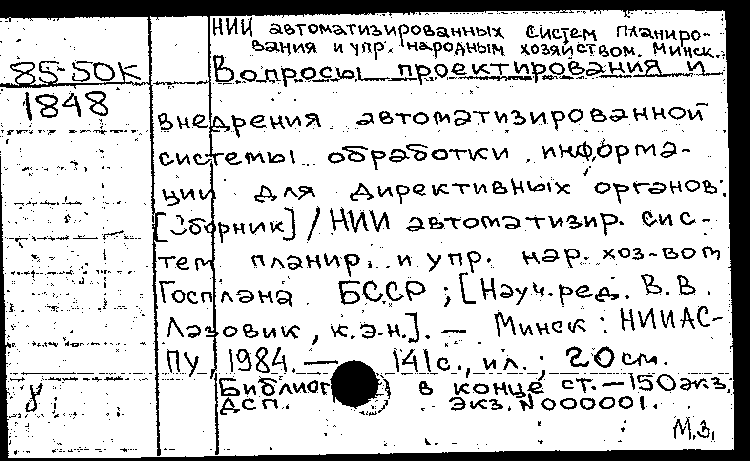 НИИ автоматизированных систем планиро-
вания и упр. народным хозяйством. Минск.
85-50К
Вопросы проектирования и
1848
внедрения автоматизированной
системы обработки информа-
ции для директивных органов:
[Сборник] / НИИ автоматизир. сис-
тем планир. и упр. нар. хоз-вом
Госплана БССР ; [Науч. ред. В. В.
Лазовик, к.э.н.]. — Минск : НИИАС-
ПУ, 1984. — 141с., ил. ; 20 см.
Библиог в конце ст. — 150 экз.
ДСП. экз. N 000001.
М.З.